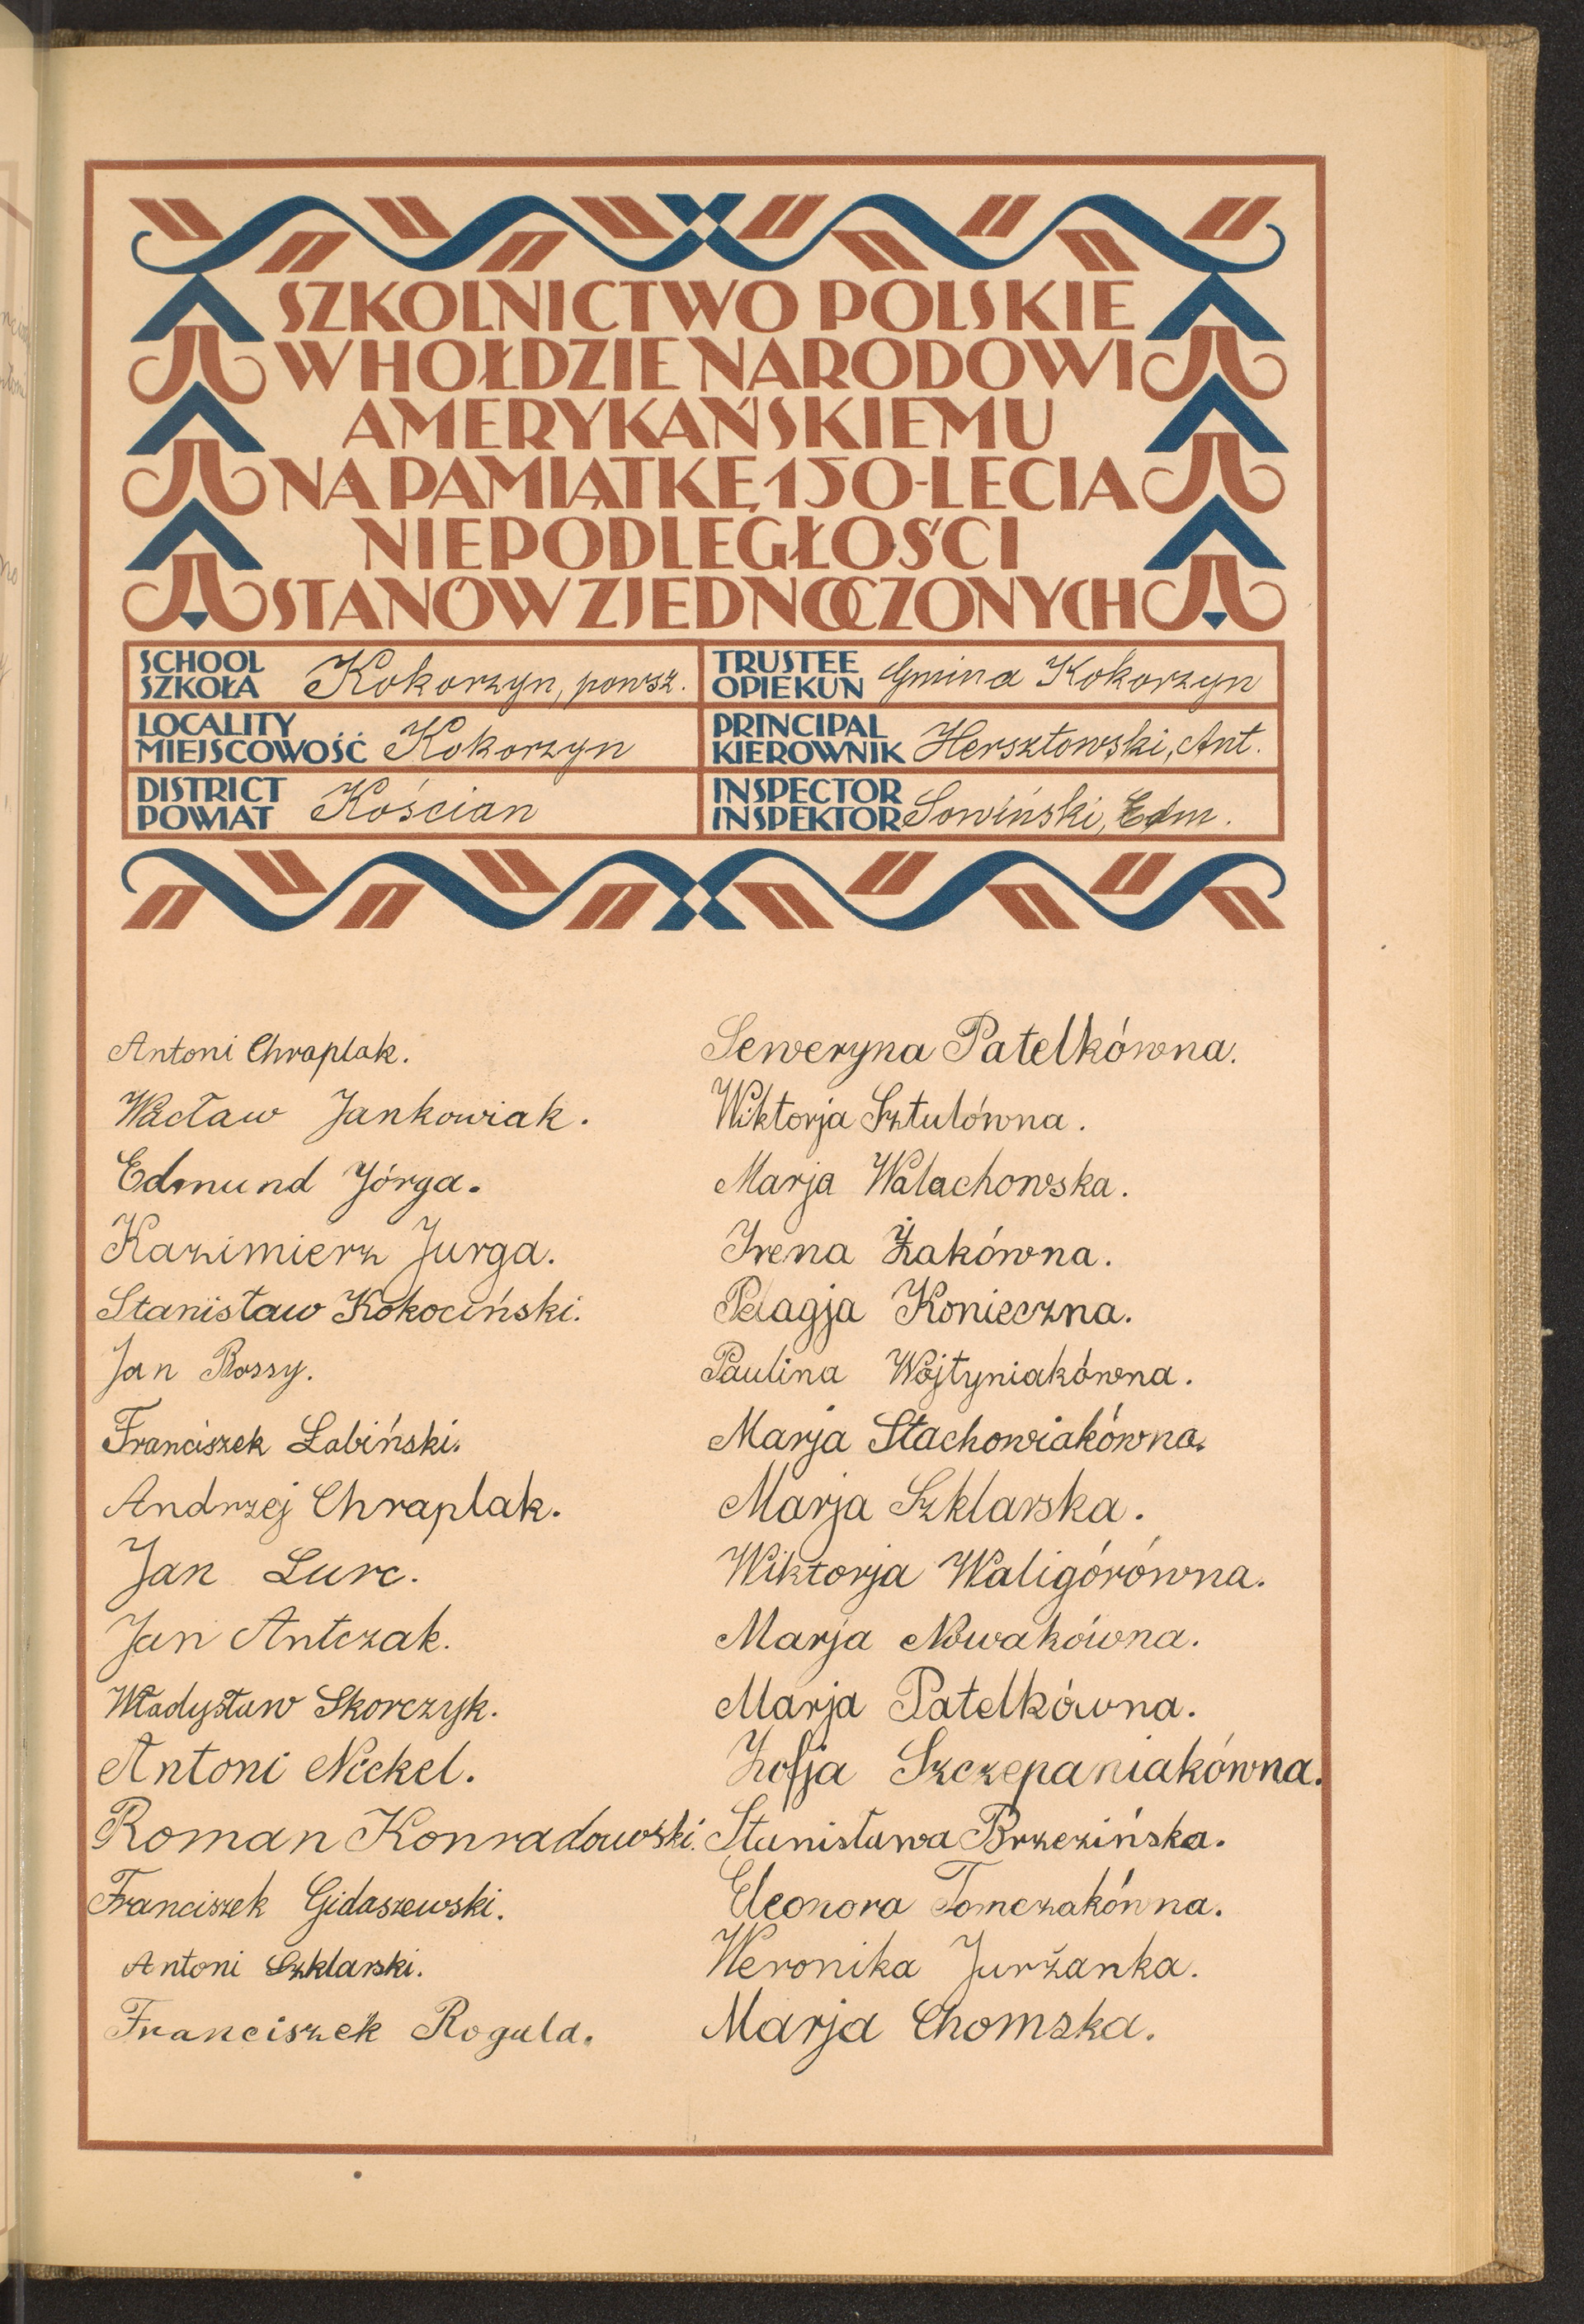 SZKOLNICTWO POLSKIE
W HOŁDZIE NARODOWI
AMERYKAŃSKIEMU
NA PAMIĄTKĘ 150-LECIA
NIEPODLEGŁOŚCI
STANÓW ZJEDNOCZONYCH
SCHOOL
SZKOŁA Kokorzyn, powsz.
TRUSTEE
OPIEKUN Gmina Kokorzyn
LOCALITY
MIEJSCOWOŚĆ Kokorzyn
PRINCIPAL
KIEROWNIK Hersztowski, Ant.
DISTRICT
POWIAT Kościan
INSPECTOR
INSPEKTOR Sowiński, Edm.
Antoni Chraplak.
Wacław Jankowiak.
Edmund Jórga.
Kazimierz Jurga.
Stanisław Kokociński.
Jan Bossy.
Franciszek Łabiński.
Andrzej Chraplak.
Jan Lurc.
Jan Antczak.
Władysław Skorczyk.
Antoni Nickel.
Roman Konradowski.
Franciszek Gidaszewski.
Antoni Szklarski.
Franciszek Rogala.
Seweryna Patelkówna.
Wiktorja Sztulówna.
Marja Walachowska.
Irena Żakówna.
Pelagja Konieczna.
Paulina Wojtyniakówna.
Marja Stachowiakówna.
Marja Szklarska.
Wiktorja Waligórówna.
Marja Nowakówna.
Marja Patelkówna.
Zofja Szczepaniakówna.
Stanisława Brzezińska.
Eleonora Tomczakówna.
Weronika Jurżanka.
Marja Chomska.